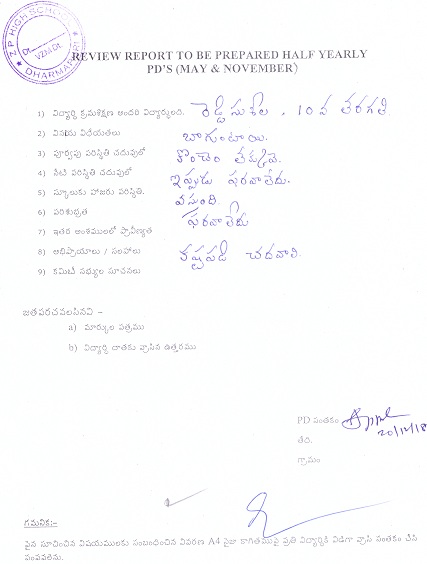 Z P HIGH SCHOOL
Dt. VZM Dt.
DHARMAPURI
REVIEW REPORT TO BE PREPARED HALF YEARLY
PD'S (MAY & NOVEMBER)
1) విద్యార్థి క్రమశిక్షణ అందరి విద్యార్థులది. రెడ్డి సుశీల , 10 వ తరగతి
2) వినయ విధేయతలు బాగుంటాయి.
3) పూర్వపు పరిస్థితి చదువులో కొంచెం తక్కువ.
4) నేటి పరిస్థితి చదువులో ఇప్పుడు ఫరవాలేదు.
5) స్కూలుకు హాజరు పరిస్థితి. వస్తుంది.
6) పరిశుభ్రత ఫరవాలేదు
7) ఇతర అంశములలో ప్రావీణ్యత
8) అభిప్రాయాలు / సలహాలు కష్టపడి చదవాలి.
9) కమిటీ సభ్యుల సూచనలు
జతపరచవలసినవి –
a) మార్కుల పత్రము
b) విద్యార్థి దాతకు వ్రాసిన ఉత్తరము
PD సంతకం
20/12/18
తేది.
గ్రామం
గమనిక:–
పైన సూచించిన విషయములకు సంబంధించిన వివరణ A4 సైజు కాగితముపై ప్రతి విద్యార్థికి విడిగా వ్రాసి సంతకం చేసి
పంపవలెను.